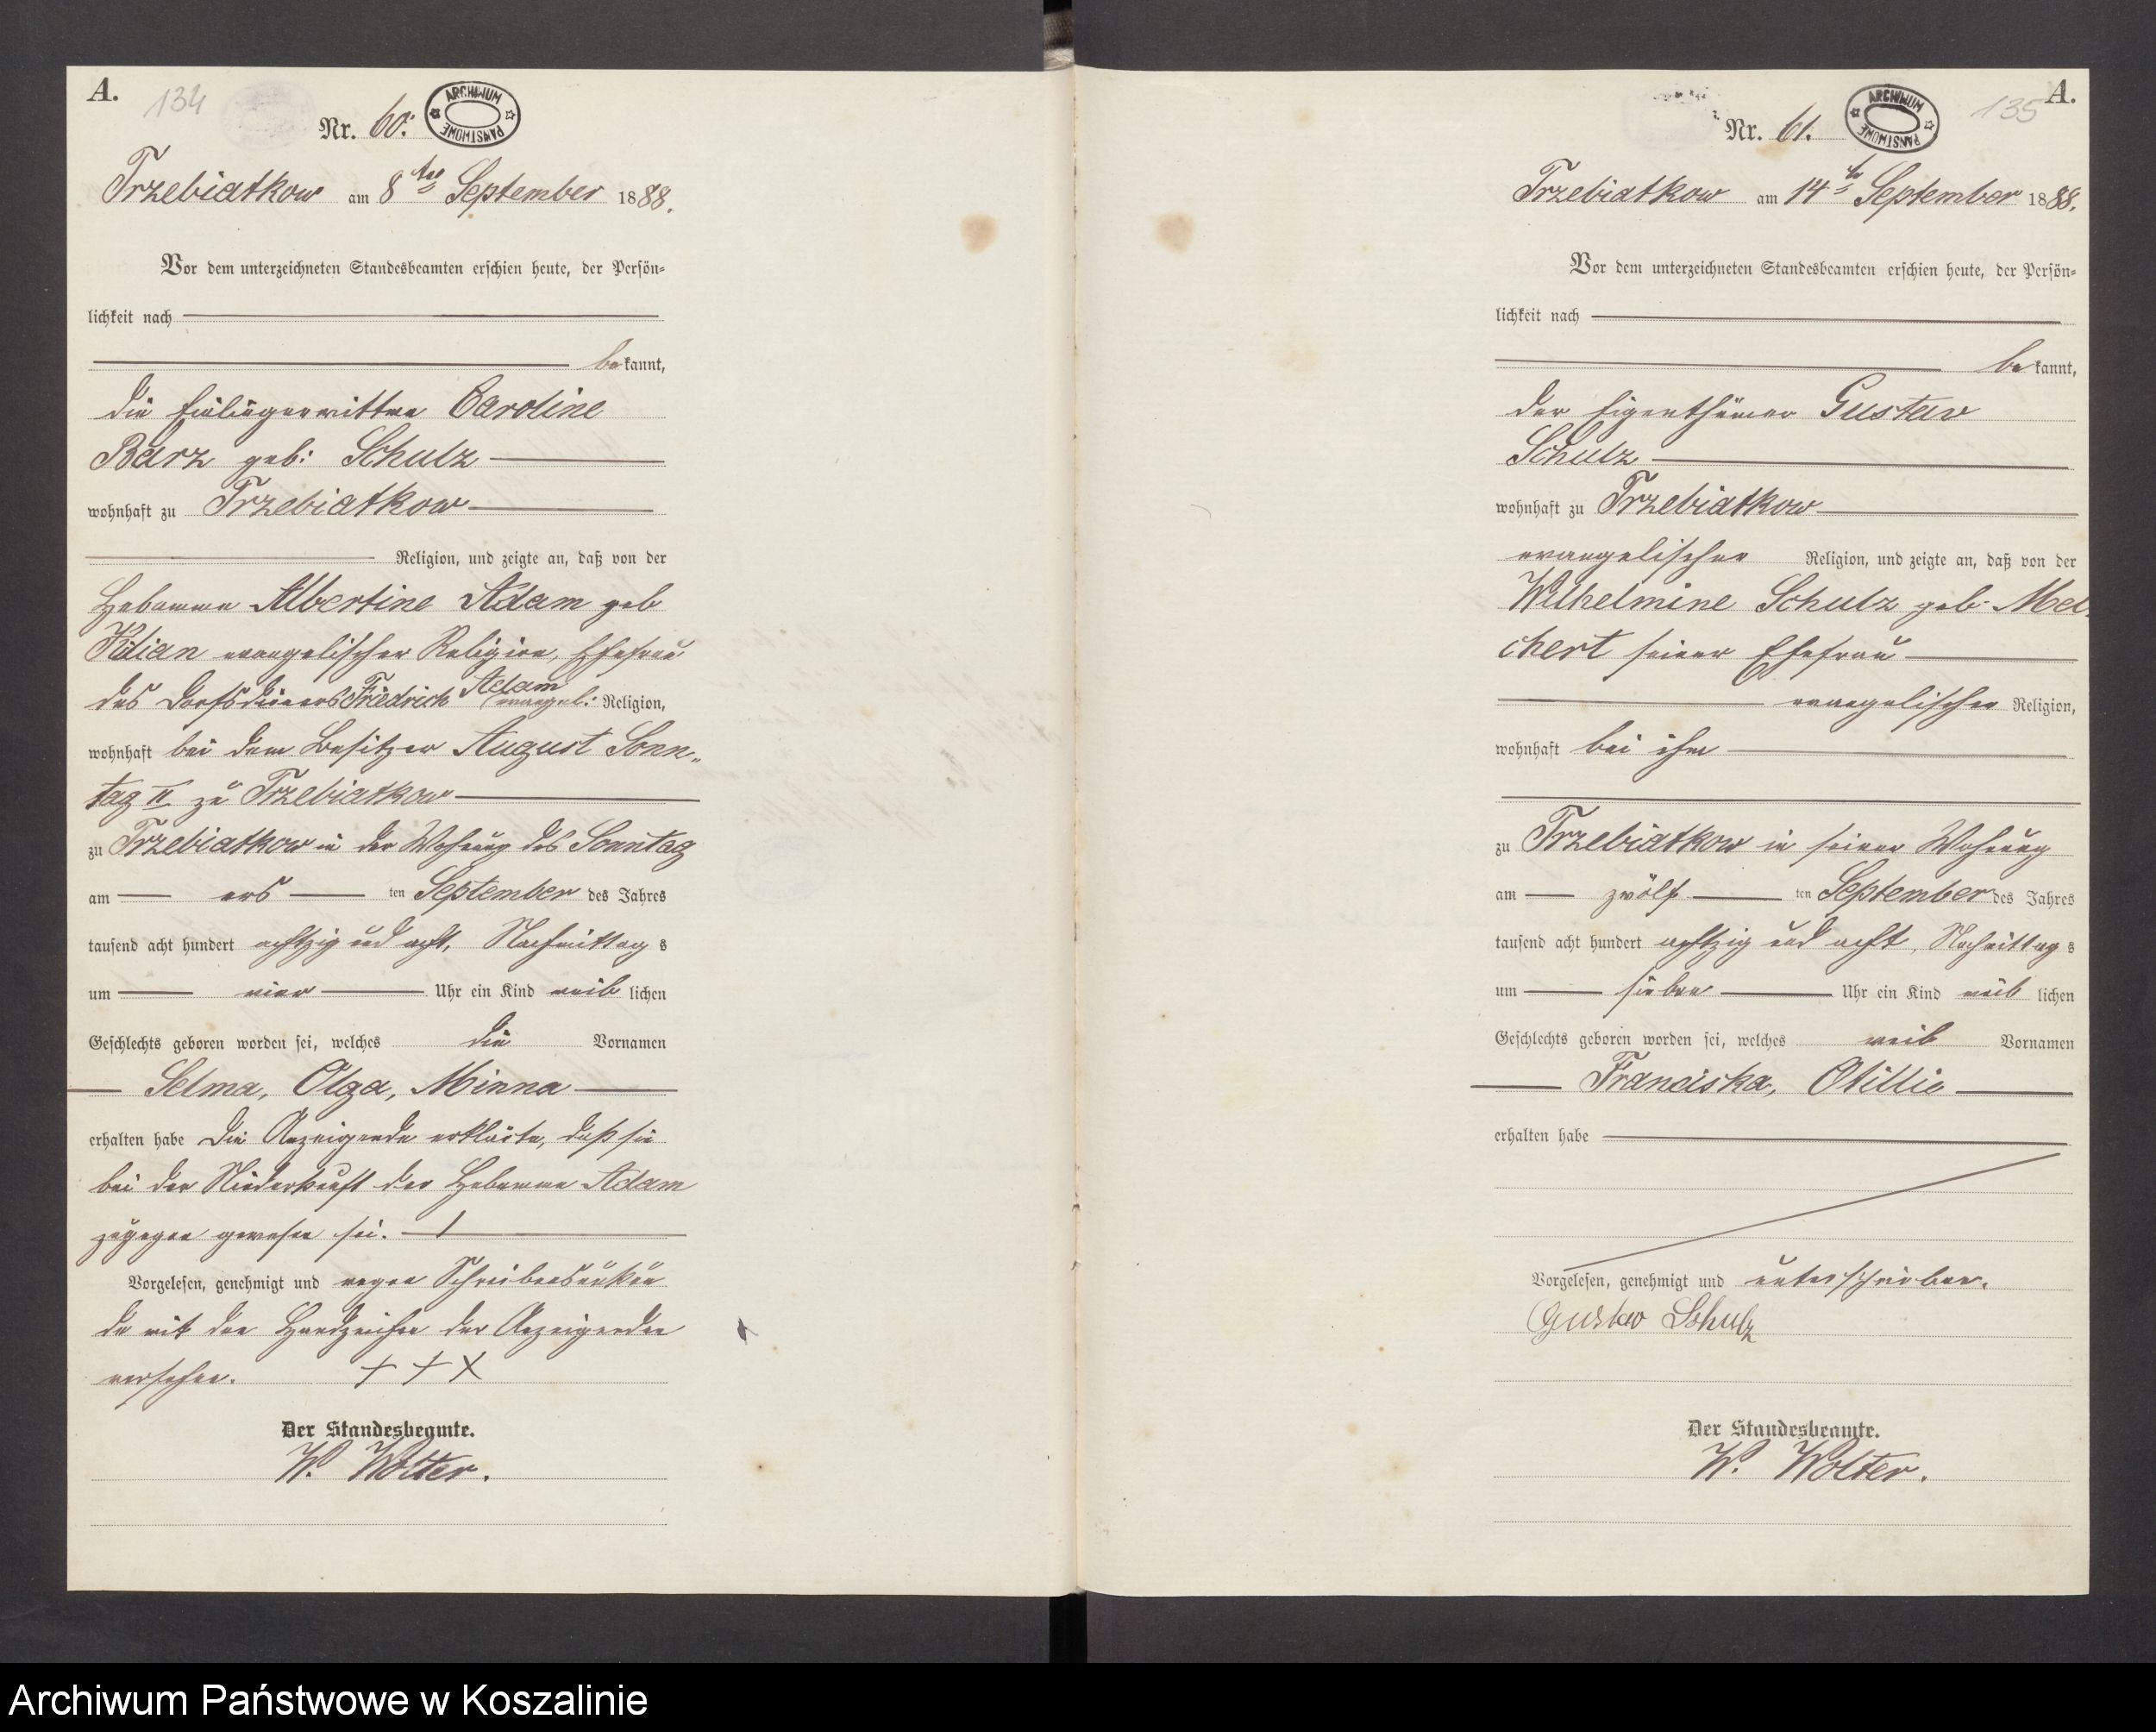 A.
134
Nr. 60.
ARCHIWUM PAŃSTWOWE
Trzebiatkow am 8ten September 1888.
Vor dem unterzeichneten Standesbeamten erschien heute, der Persön-
lichkeit nach
bekannt,
die Einliegerwittwe Caroline
Barz geb: Schulz
wohnhaft zu Trzebiatkow
Religion, und zeigte an, daß von der
Hebamme Albertine Adam geb
Kilian evangelischer Religion, Ehefrau
des Dorfsdieners Friedrich Adam evangel: Religion,
wohnhaft bei dem Besitzer August Sonn-
tag II zu Trzebiatkow
zu Trzebiatkow in der Wohnung des Sonntag
am ers ten September des Jahres
tausend acht hundert achtzig und acht, Nachmittag s
um vier Uhr ein Kind weib lichen
Geschlechts geboren worden sei, welches die Vornamen
Selma, Olga, Minna
erhalten habe Die Anzeigende erklärte, daß sie
bei der Niederkunft der Hebamme Adam
zugegen gewesen sei.
Vorgelesen, genehmigt und wegen Schreibensunkun
de mit den Handzeichen der Anzeigenden
versehen. + + +
Der Standesbeamte.
W. Wolter.
A.
135
Nr. 61.
ARCHIWUM PAŃSTWOWE
Trzebiatkow am 14ten September 1888.
Vor dem unterzeichneten Standesbeamten erschien heute, der Persön-
lichkeit nach
bekannt,
der Eigenthümer Gustav
Schulz
wohnhaft zu Trzebiatkow
evangelischer Religion, und zeigte an, daß von der
Wilhelmine Schulz geb. Mel-
chert seiner Ehefrau
evangelischer Religion,
wohnhaft bei ihm
zu Trzebiatkow in seiner Wohnung
am zwölf ten September des Jahres
tausend acht hundert achtzig und acht, Nachmittag s
um sieben Uhr ein Kind weib lichen
Geschlechts geboren worden sei, welches weib Vornamen
Franciska, Ottillie
erhalten habe
Vorgelesen, genehmigt und unterschrieben.
Gustav Schulz
Der Standesbeamte.
W. Wolter.
Archiwum Państwowe w Koszalinie